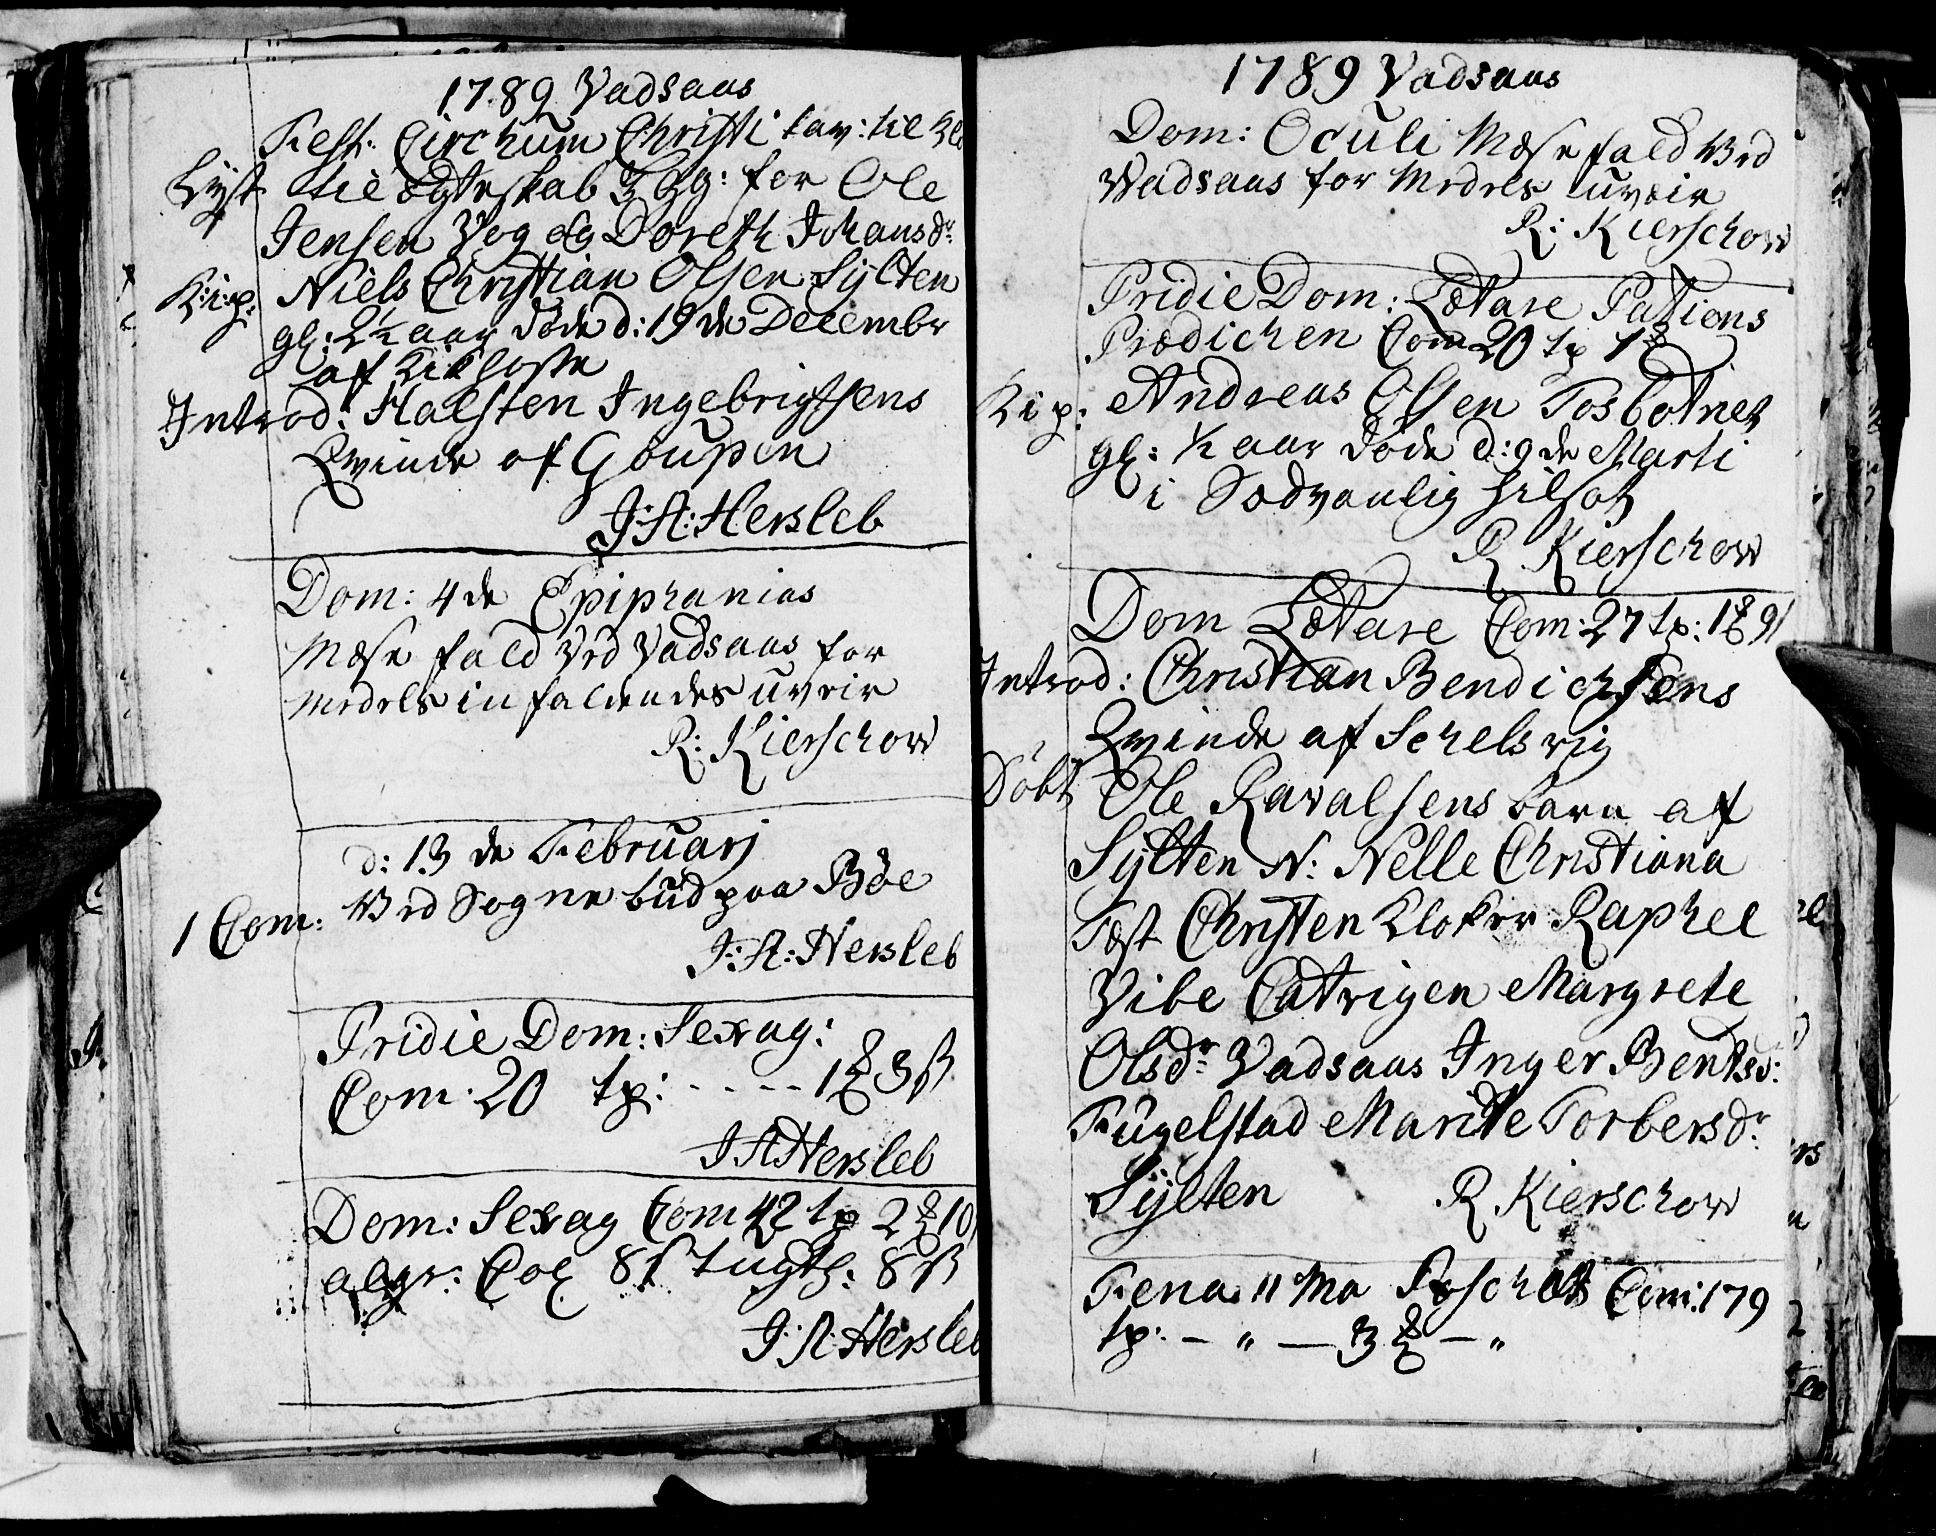 1789 Vadsaas
Fest: Circhum Christi tav: til
Lyst til Ægteskab 3 Gg: for Ole
Jensen Vog og Doreth Johansdr
K: i: p: Niels Christian Olsen Sylten
gl: 2½ aar døde d: 19 de Decembr
af Kikhoste
Introd: Halsten Ingebrigtsens
Qvinde af Goupen
J: A: Hersleb
Dom: 4 de Epiphanias
Mæse fald ved Vadsaas for
medels infaldendes uveir
R: Kierschow
d: 13 de Februarj
1 Com: Ved Sogne bud paa Böe
J: A: Hersleb
Pridie Dom: Sexag:
Com: 20 tp: - - - - 1 3 ß
J A Hersleb
Dom: Sexag Com 42 tp 2 10
algr: Col 8 ß tugth: 8 ß
J: A: Hersleb
1789 Vadsaas
Dom: Oculi Mæse fald Ved
Vadsaas for medels uveir
R: Kierschow
Pridie Dom: Lætare Pations
Prædichen Com 20 tp 1
K i p: Andreas Olsen Tosbotnet
gl: ½ aar døde d: 9 de Marti
i Sædvanlig hilsot
R Kierschow
Dom Lætare Com: 27 tp: 1 9
Introd: Christian Bendichsens
Qvinde af Schelsvig
Döbt Ole Ravalsens barn af
Sylten N: Nelle Christiana
Test Christen Kloker Raphel
Vibe Catrigen Margrete
Olsdr Vadsaas Inger Bentsd:
Fugelstad Marite Torbersdr
Sylten R. Kierschow
Fena 11 Ma Com: 179
tp: — " — 3 — "